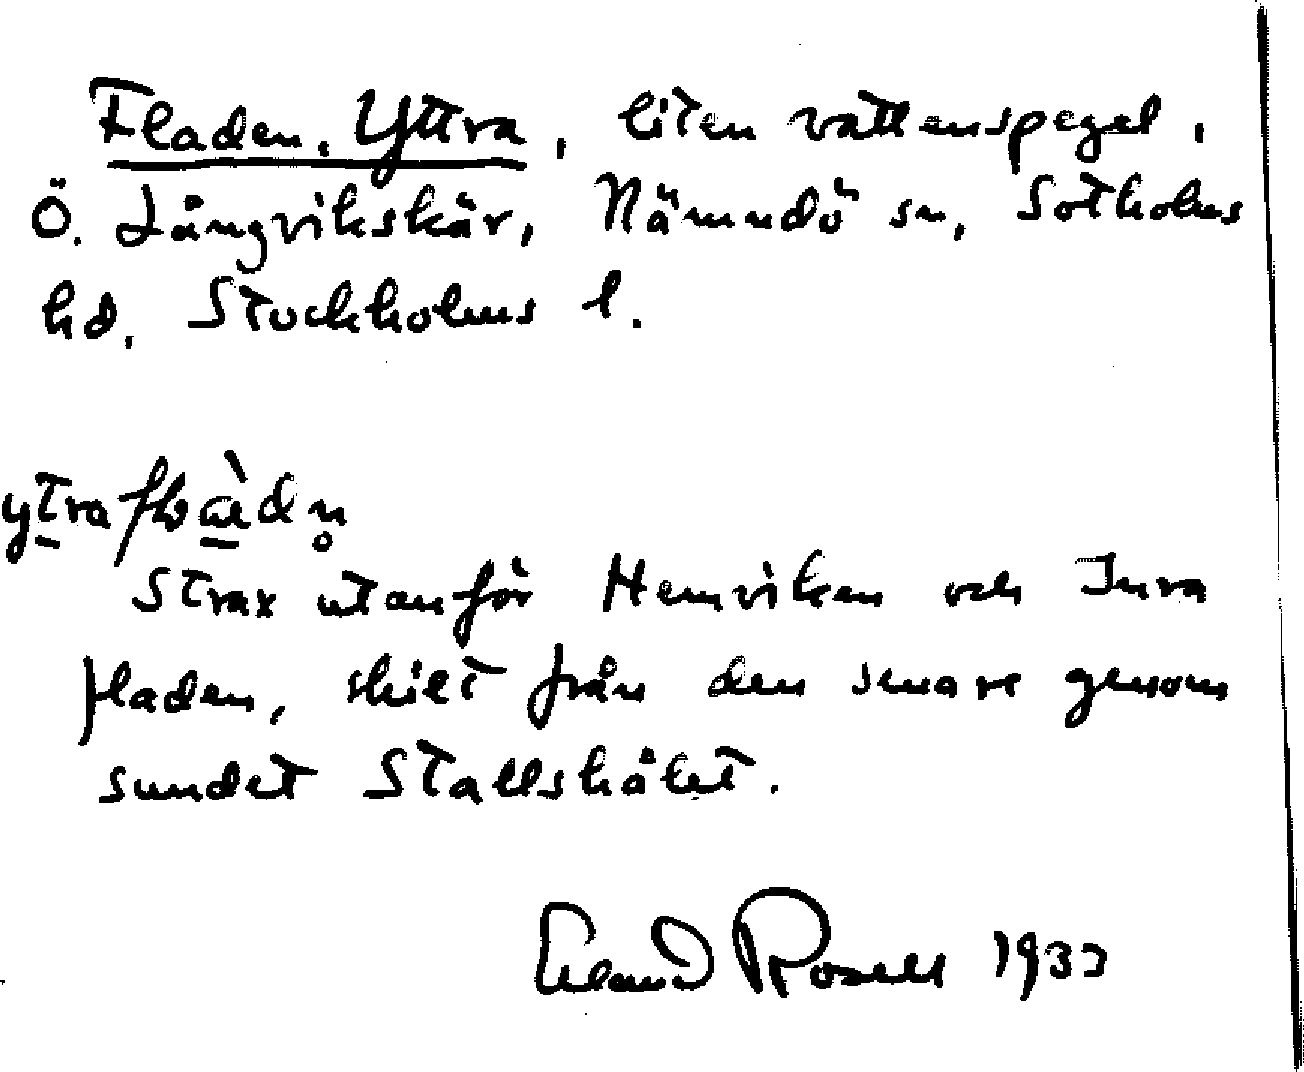 Fladen, Yttra, liten vattenspegel,
Ö. Långvikskär, Nämndö sn, Sotholms
hd, Stockholms l.
Strax utanför Hemviken och Inra
fladen, skilt från den senare genom
sundet Stallshålet.
Erland Rosell 1933